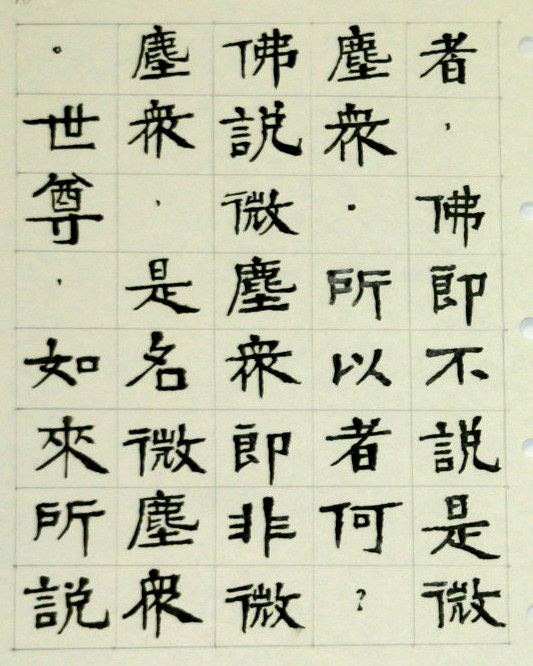 者，佛即不説是微
塵衆，所以者何？
佛説微塵衆即非微
塵衆，是名微塵衆
。世尊，如來所説